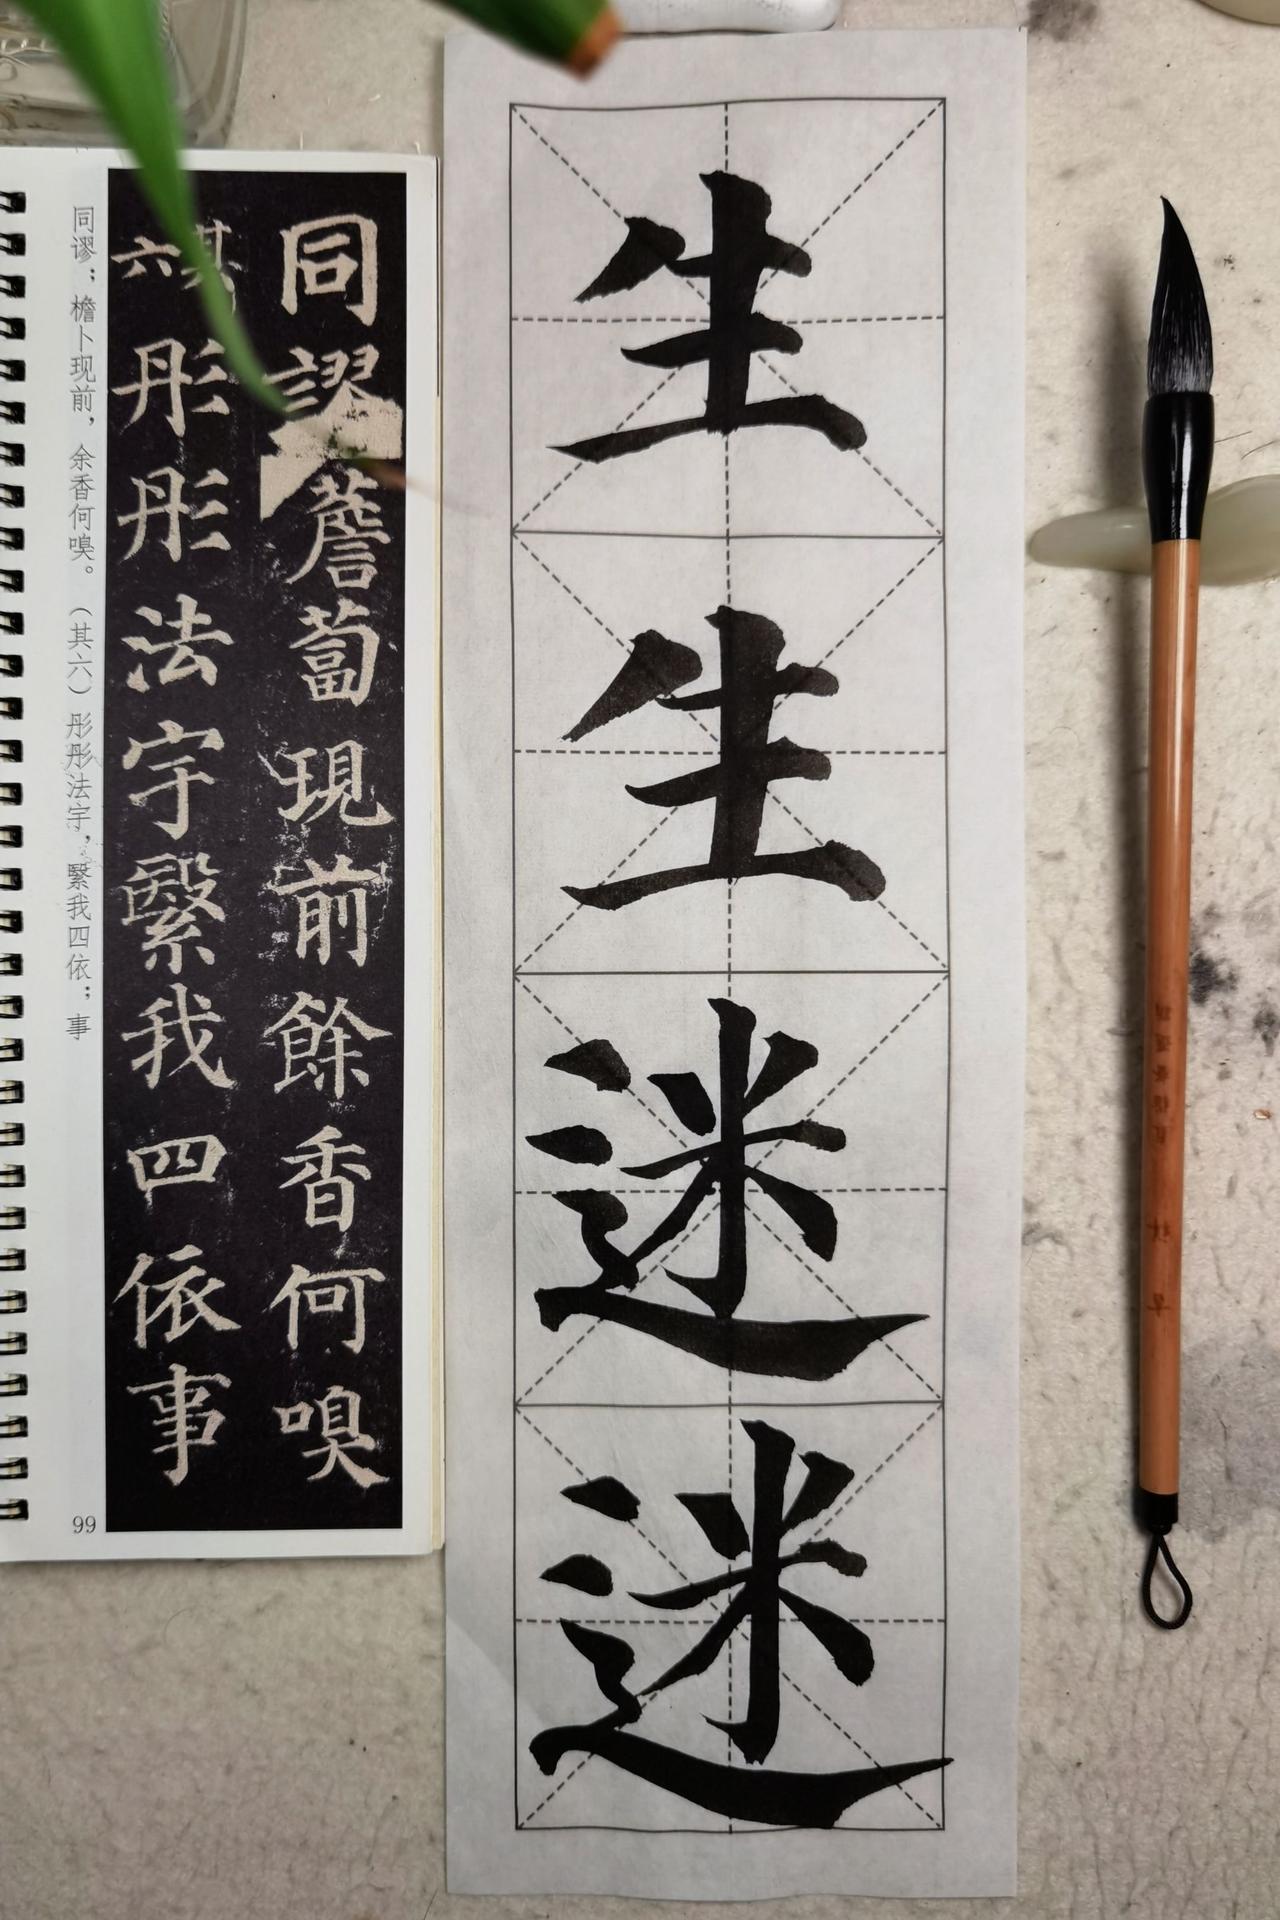 生生迷迷
同謬薝蔔現前餘香何嗅
其六彤彤法宇繄我四依事
同谬；檐卜现前，余香何嗅。（其六）彤彤法宇，繄我四依；事
99